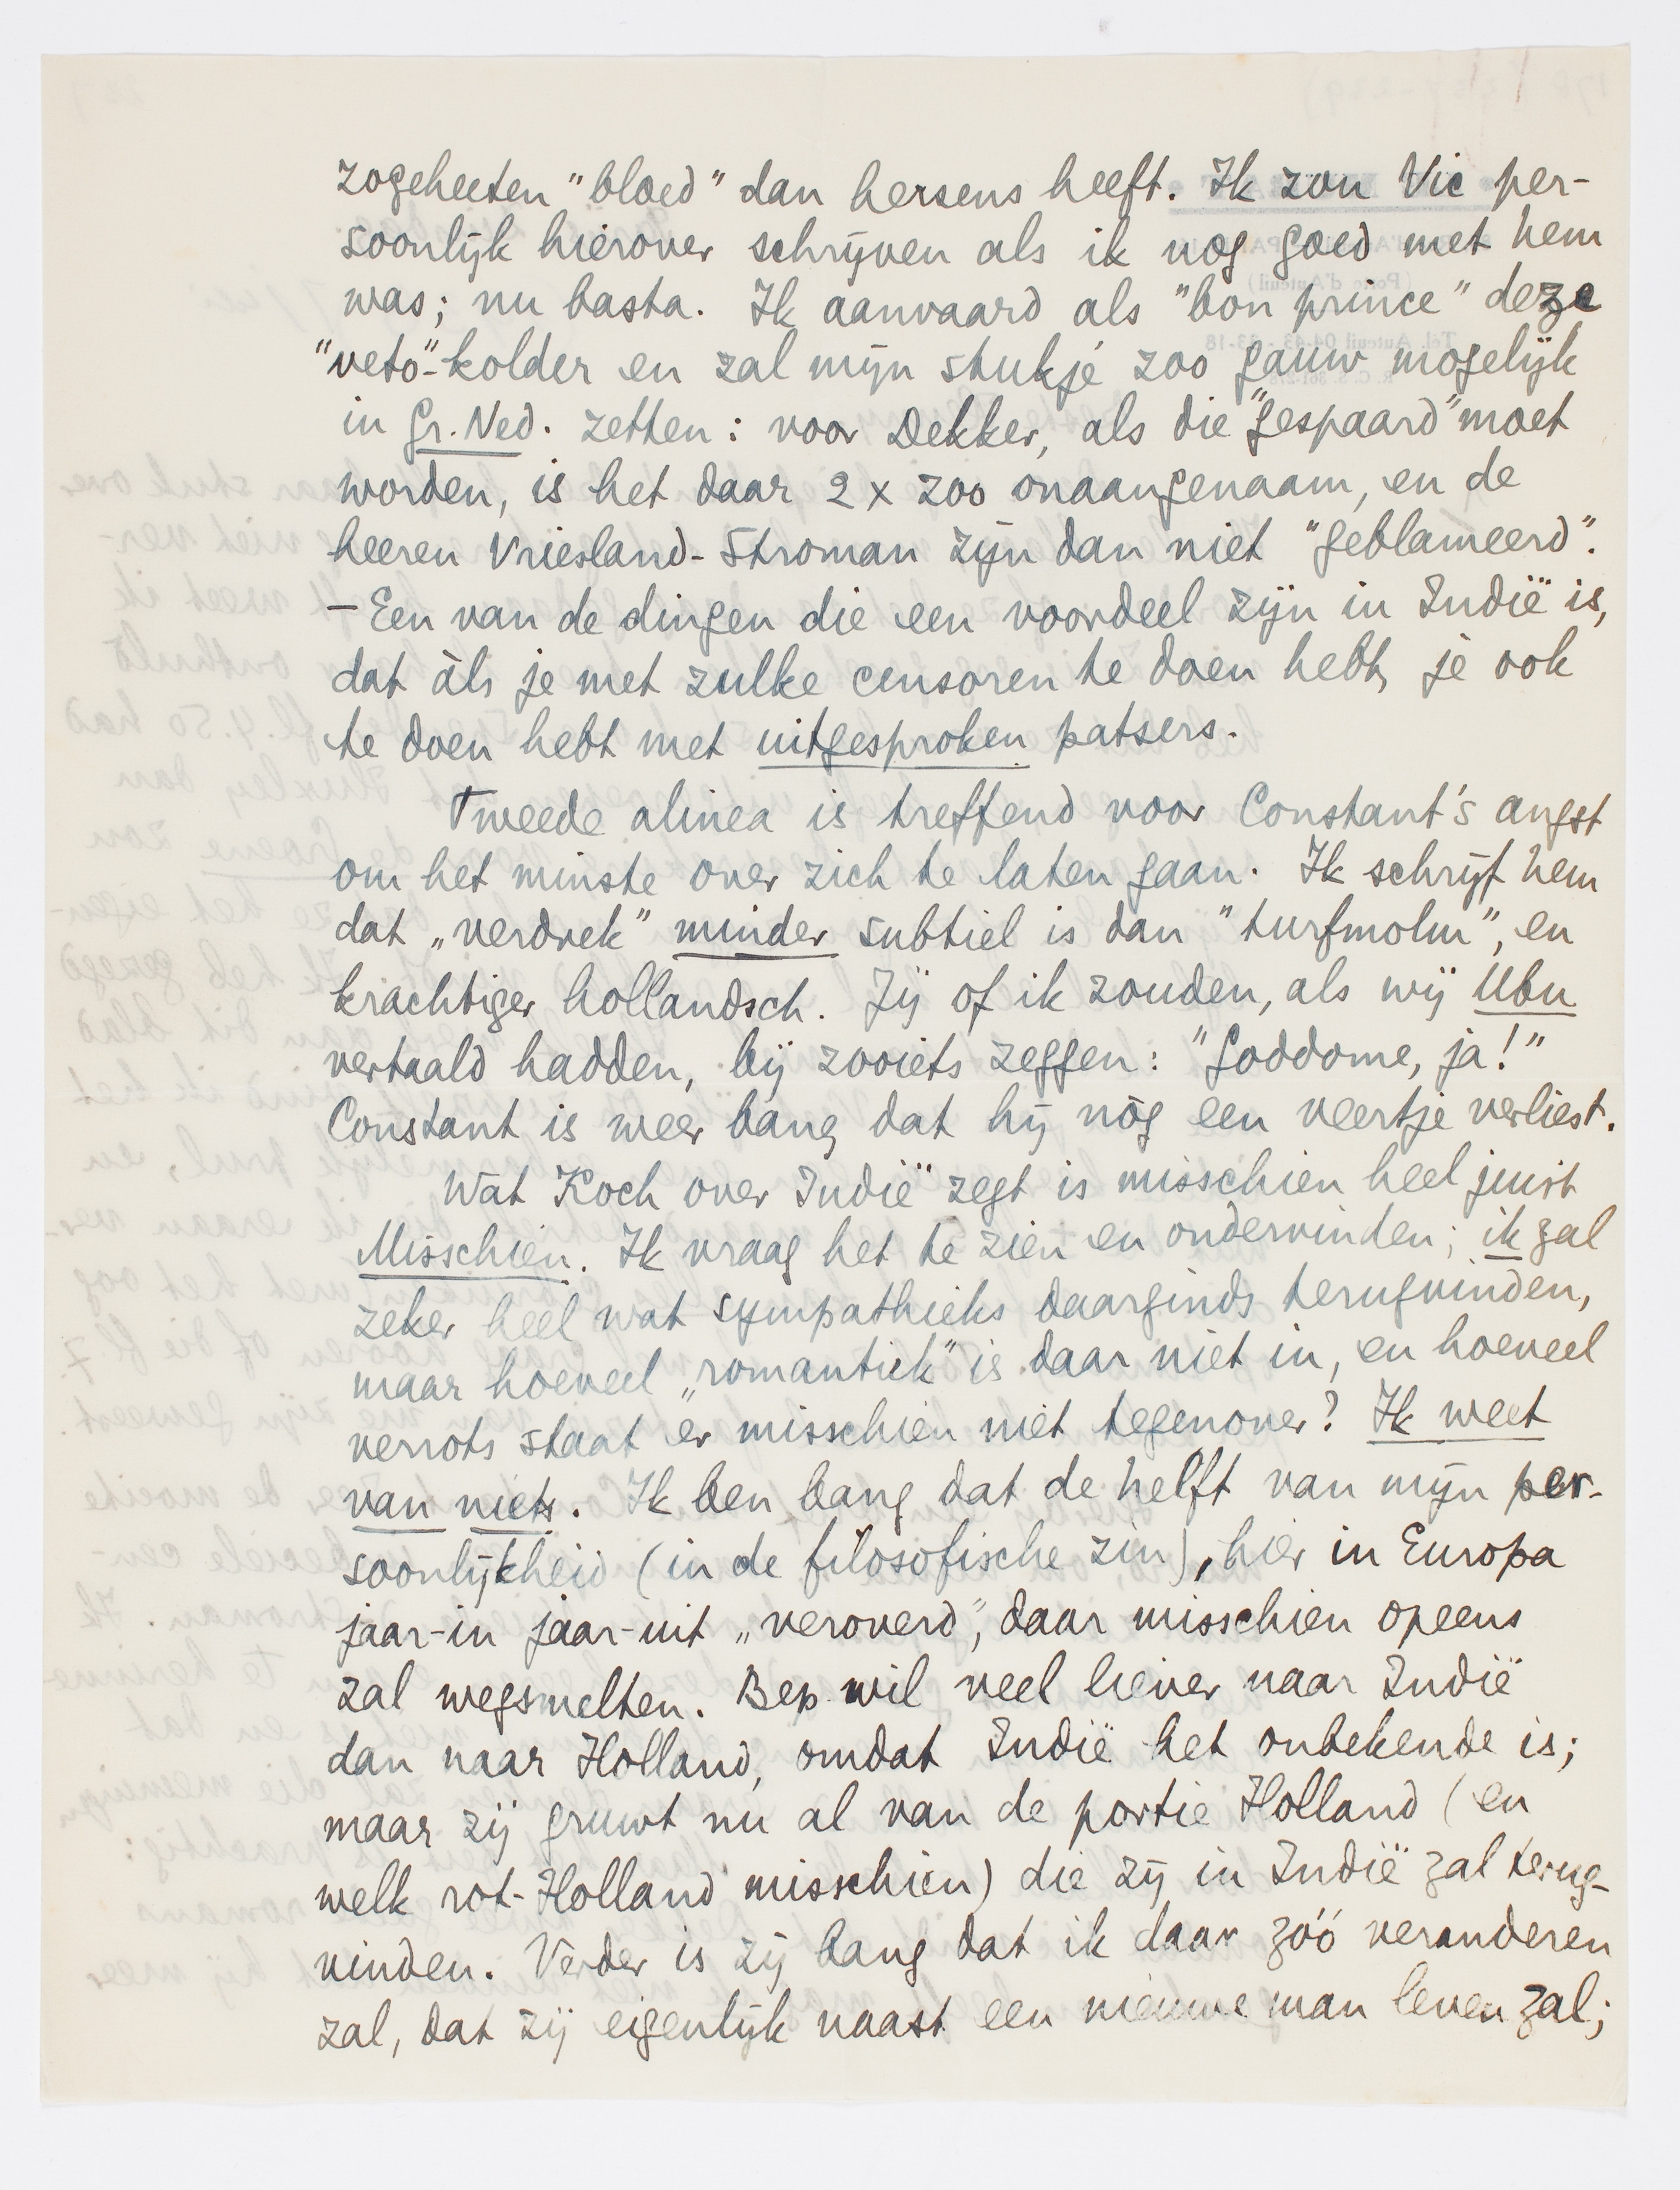 zogeheeten "bloed" dan hersens heeft. Ik zou Vic per-
soonlijk hierover schrijven als ik nog goed met hem
was; nu basta. Ik aanvaard als "bon prince" deze
"veto"-kolder en zal mijn stukje zoo gauw mogelijk
in Gr. Ned. zetten: voor Dekker, als die "gespaard" moet
worden, is het daar 2 x zoo onaangenaam, en de
heeren Vriesland-Stroman zijn dan niet "geblameerd".
— Een van de dingen die een voordeel zijn in Indië is,
dat àls je met zulke censoren te doen hebt, je ook
te doen hebt met uitgesproken patsers.
Tweede alinea is treffend voor Constant's angst
om het minste over zich te laten gaan. Ik schrijf hem
dat „verdrek" minder subtiel is dan "turfmolm", en
krachtiger hollandsch. Jij of ik zouden, als wij Ubu
vertaald hadden, bij zooiets zeggen: "Goddome, ja!"
Constant is weer bang dat hij nòg een veertje verliest.
Wat Koch over Indië zegt is misschien heel juist
Misschien. Ik vraag het te zien en ondervinden; ik zal
zeker heel wat sympathieks daarginds terugvinden,
maar hoeveel „romantiek" is daar niet in, en hoeveel
verrots staat er misschien niet tegenover? Ik weet
van niets. Ik ben bang dat de helft van mijn per-
soonlijkheid (in de filosofische zin), hier in Europa
jaar-in jaar-uit „veroverd", daar misschien opeens
zal wegsmelten. Bep wil veel liever naar Indië
dan naar Holland, omdat Indië het onbekende is;
maar zij gruwt nu al van de portie Holland (en
welk rot-Holland misschien) die zij in Indië zal terug-
vinden. Verder is zij bang dat ik daar zóó veranderen
zal, dat zij eigenlijk naast een nieuwe man leven zal;